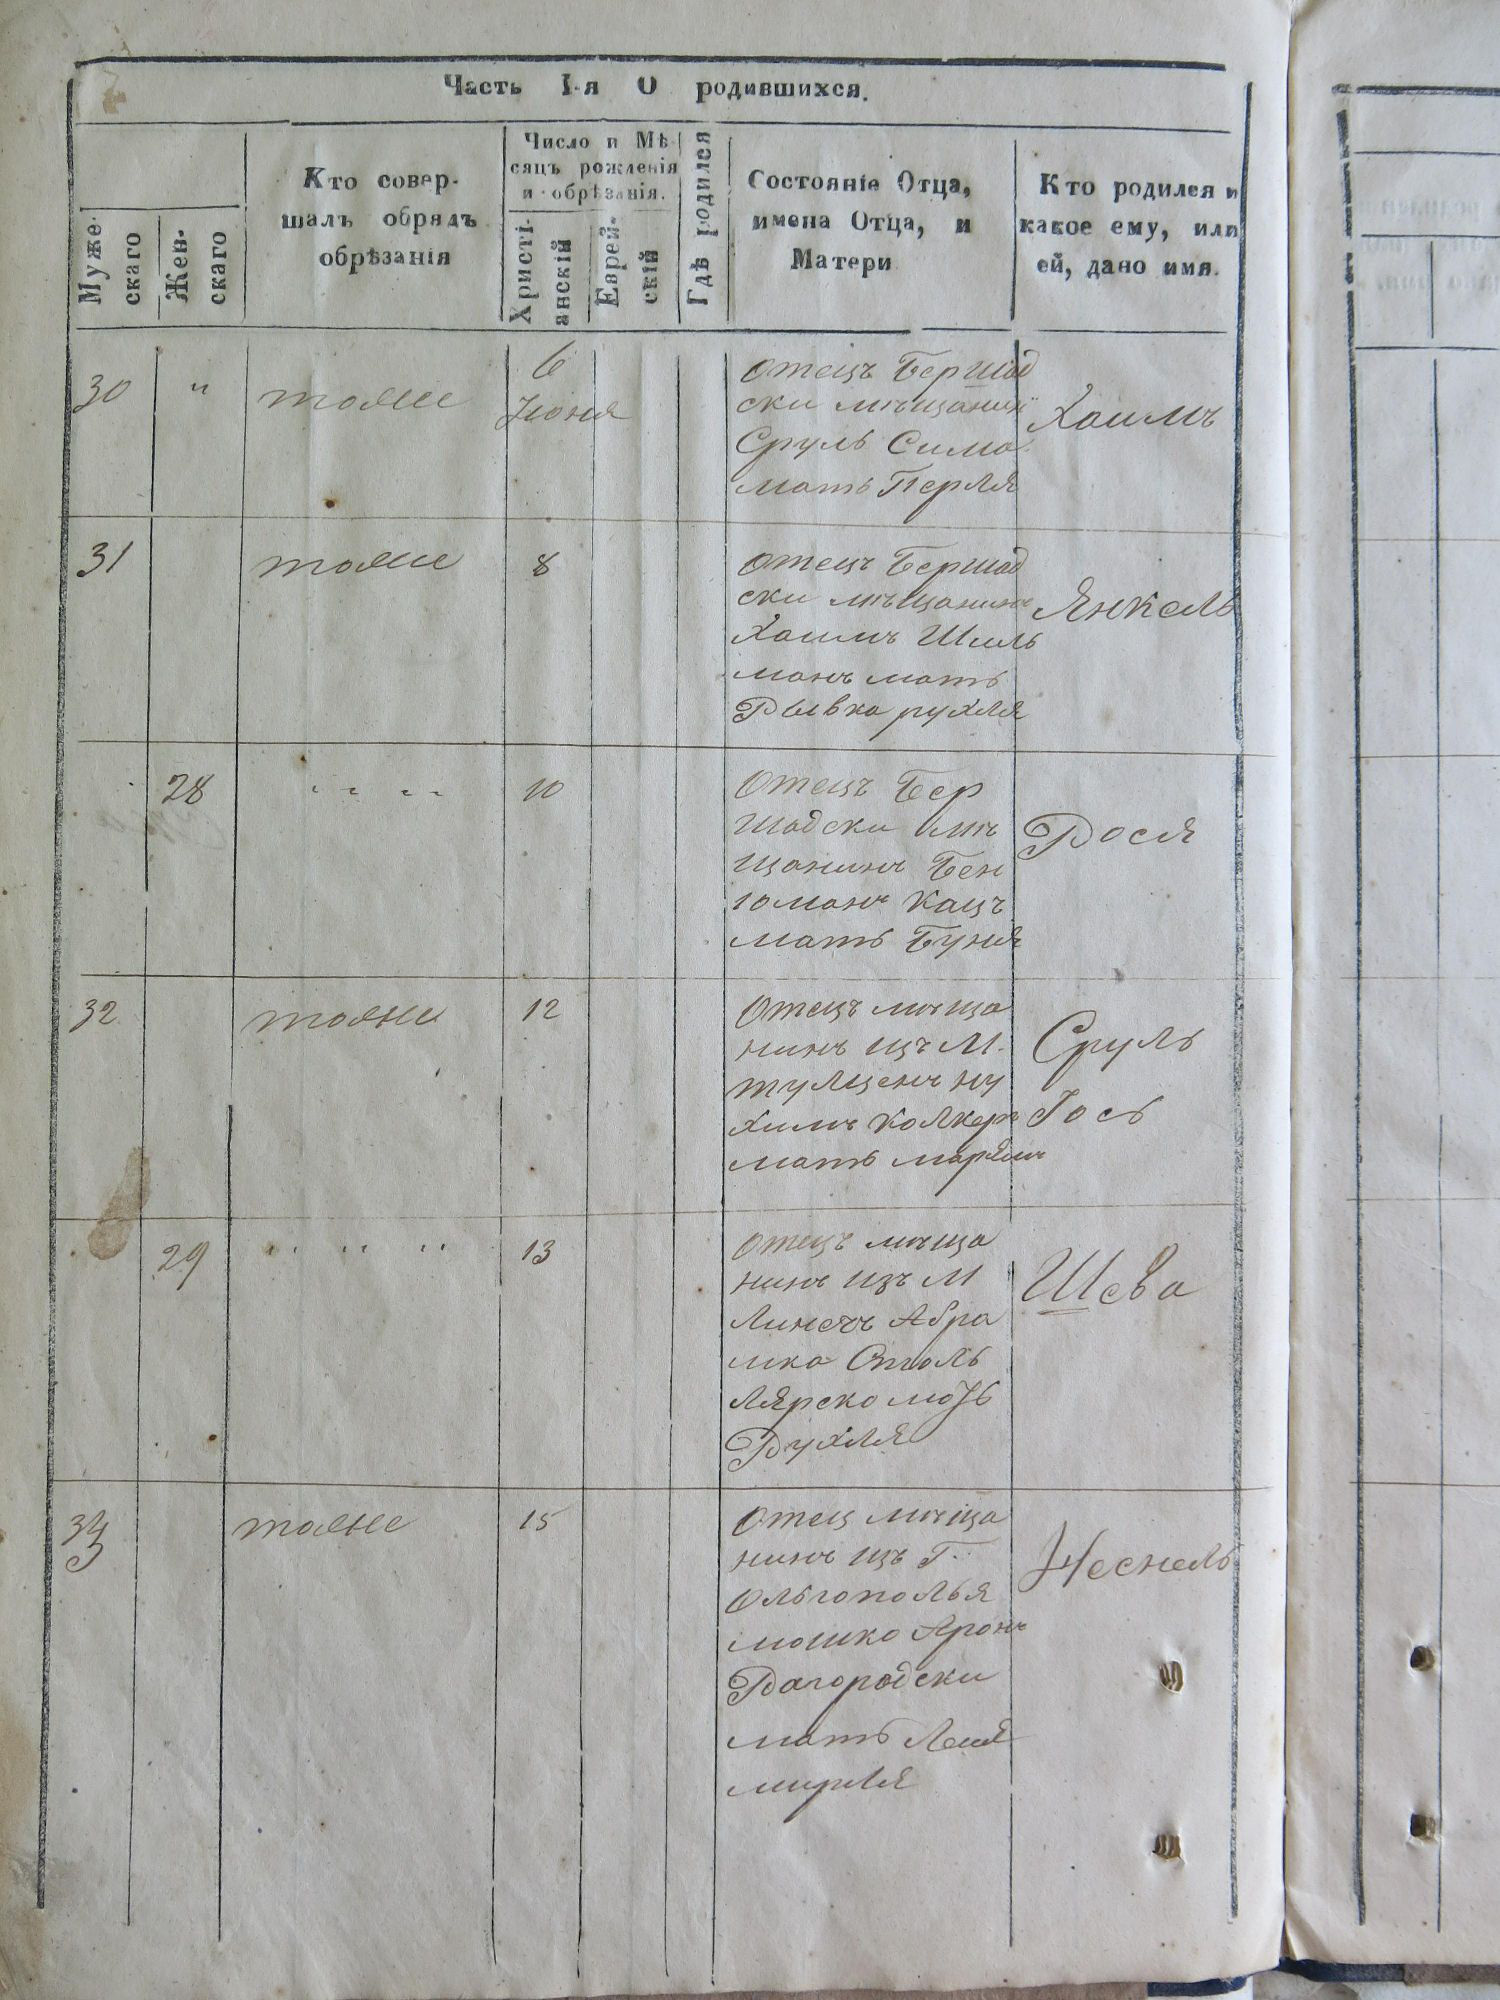 Часть I-я О родившихся.
Муже-
скаго
Жен-
скаго
Кто совер-
шалъ обрядъ
обрѣзанія
Число и Мѣ-
сяцъ рожденія
и обрѣзанія.
Христі-
анскій
Еврей-
скій
Гдѣ родился
Состояніе Отца,
имена Отца, и
Матери
Кто родился и
какое ему, или
ей, дано имя.
30 " тоже 6
Іюня
отецъ Бершад
ски мѣщанинъ
Сруль Сима
мать Перля
Хаимъ
31 тоже 8
отецъ Бершад
ски мѣщанинъ
Хаимъ Шиль
манъ мать
Рывка рухля
Янкель
28 " " 10
Отецъ Бер
шадски мѣ
щанинъ Бен
юманъ Кацъ
мать Буня
Рося
32 тоже 12
Отецъ мѣща
нинъ изъ М.
тулщенъ ну
химъ Колкеръ
мать марямъ
Сруль
Гось
29 " " " 13
отецъ мѣща
нинъ изъ М
Абра
мка Столь
лярско мать
Рухля
Шева
33 тоже 15
отец мѣща
нинъ изъ Г.
Ольгополья
мошко Аронъ
Рагородски
мать Лея
мирля
Хаскель